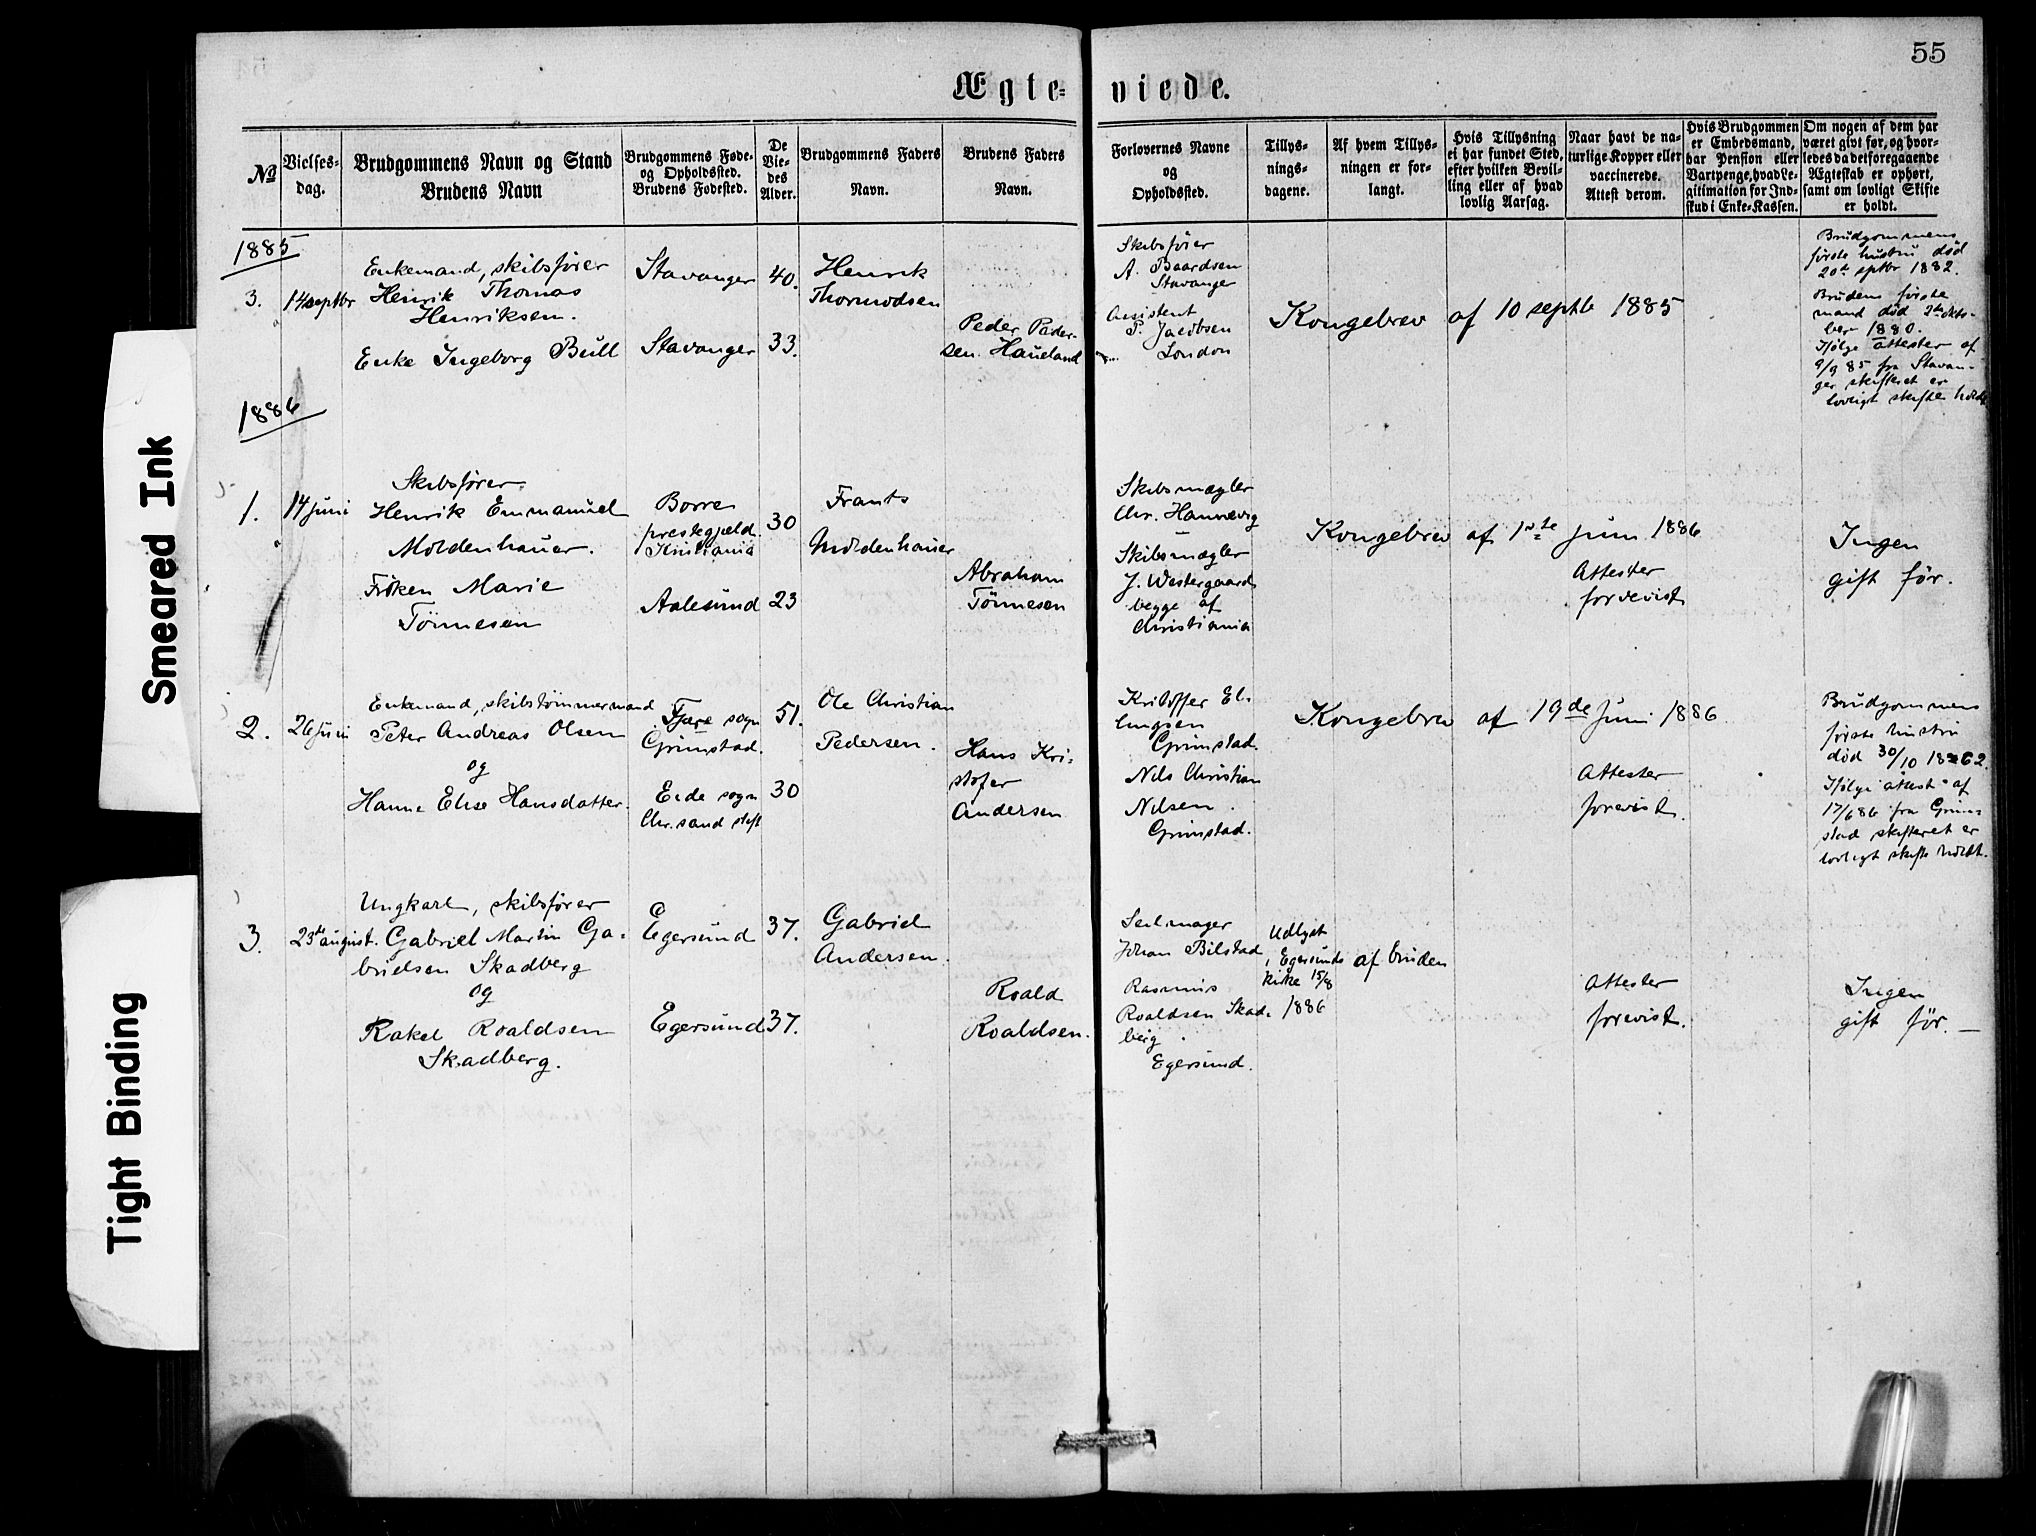 55
Ægte-
viede.
№
Vielses-
dag.
Brudgommens Navn og Stand
Brudens Navn
Brudgommens Føde-
og Opholdssted.
Brudens Fødested.
De
Vie-
des
Alder.
Brudgommens Faders
Navn.
Brudens Faders
Navn.
Forlovernes Navne
og
Opholdssted.
Tillys-
nings-
dagene.
Af hvem Tillys-
ningen er for-
langt.
Hvis Tillysning
ei har fundet Sted,
efter hvilken Bevil-
ling eller af hvad
lovlig Aarsag.
Naar havt de na-
turlige Kopper eller
vaccinerede.
Attest derom.
Hvis Brudgommen
er Embedsmand,
har Pension eller
Vartpenge, hvad Le-
gitimation for Ind-
skud i Enke-Kassen.
Om nogen af dem har
været givt før, og hvor-
ledes da det foregaaende
Ægteskab er ophørt,
samt om lovligt Skifte
er holdt.
1885
3.
14 septbr
Enkemand, skibsfører
Henrik Thomas
Henriksen.
Enke Ingeborg Bull
Stavanger
Stavanger
40.
33.
Henrik
Thormodsen
Peder Peder-
sen Haueland
Skibsfører
A. Baardsen
Stavanger
Assistent
P. Jacobsen
London
Kongebrev af 10 septb 1885
Brudgommens
første hustru død
20de septbr 1882.
Brudens første
mand død 2den okto-
ber 1880.
Ifølge attester af
9/9 85 fra Stavan-
ger skifteret er
lovligt skifte holdt
1886
1.
14 juni
Skibsfører
Henrik Emmanuel
Moldenhauer.
Frøken Marie
Tönnesen
Borre
prestegjeld.
Kristiania
Aalesund
30
23
Frants
Moldenhauer
Abraham
Tönnesen
Skibsmægler
Chr. Hannevig
Skibsmægler
J. Westergaard
begge af
Christiania
Kongebrev af 1ste Juni 1886
Attester
forevist
Ingen
gift før.
2.
26 juni
Enkemand, skibstömmermand
Peter Andreas Olsen
og
Hanne Elise Hansdatter.
Fjære sogn
Grimstad.
Eide sogn
Chr.sand stift
51.
30
Ole Christian
Pedersen.
Hans Kri-
stofer
Andersen
Kristoffer El-
lingsen
Grimstad.
Nils Christian
Nilsen.
Grimstad.
Kongebrev af 19de Juni 1886
Attester
forevist.
Brudgommens
første hustru
død 30/10 1862.
Ifølge attest af
17/6 86 fra Grim-
stad skifteret er
lovligt skifte holdt.
3.
23de august.
Ungkarl, skibsfører
Gabriel Martin Ga-
brielsen Skadberg
og
Rakel Roaldsen
Skadberg.
Egersund
Egersund
37.
37.
Gabriel
Andersen.
Roald
Roaldsen.
Seilmager
Johan Bilstad
Rasmus
Roaldsen Skad-
berg.
Egersund.
Udlyst
i Egersunds
kirke 15/8
1886
af bruden
Attester
forevist.
Ingen
gift før. —
Smeared Ink
Tight Binding